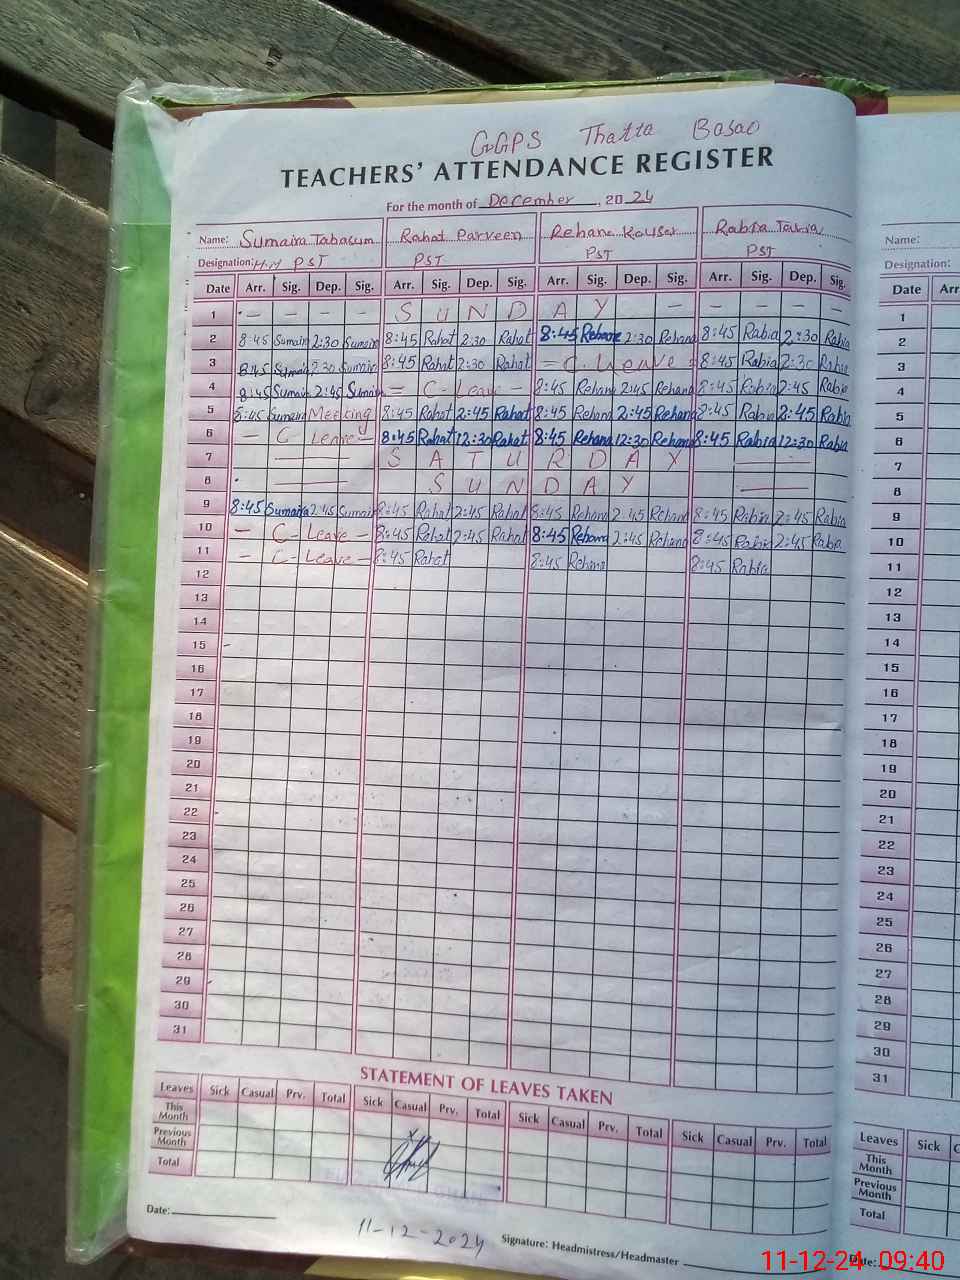 GGPS Thatta Bosao
TEACHERS' ATTENDANCE REGISTER
For the month of December, 2024
Name: Sumaira Tabasum Rahat Parveen Rehana Kousar Rabia Tabia Name:
Designation: H.M PST PST PST PST Designation:
Date Arr. Sig. Dep. Sig. Arr. Sig. Dep. Sig. Arr. Sig. Dep. Sig. Arr. Sig. Dep. Sig. Date Arr
1 - - - - S U N D A Y - - - - - - 1
2 8:45 Sumaira 2:30 Sumaira 8:45 Rahat 2:30 Rahat 8:45 Rehana 2:30 Rehana 8:45 Rabia 2:30 Rabia 2
3 8:45 Sumaira 2:30 Sumaira 8:45 Rahat 2:30 Rahat = C. Leave = 8:45 Rabia 2:30 Rabia 3
4 8:45 Sumaira 2:45 Sumaira = C - Leave - 8:45 Rehana 2:45 Rehana 8:45 Rabia 2:45 Rabia 4
5 8:45 Sumaira Meeking 8:45 Rahat 2:45 Rahat 8:45 Rehana 2:45 Rehana 8:45 Rabia 2:45 Rabia 5
6 - C - Leave - 8:45 Rahat 12:30 Rahat 8:45 Rehana 12:30 Rehana 8:45 Rabia 12:30 Rabia 6
7 S A T U R D A Y 7
8 S U N D A Y 8
9 8:45 Sumaira 2:45 Sumaira 8:45 Rahat 2:45 Rahat 8:45 Rehana 2:45 Rehana 8:45 Rabia 2:45 Rabia 9
10 - C - Leave - 8:45 Rahat 2:45 Rahat 8:45 Rehana 2:45 Rehana 8:45 Rabia 2:45 Rabia 10
11 - C - Leave - 8:45 Rahat 8:45 Rehana 8:45 Rabia 11
12 12
13 13
14 14
15 15
16 16
17 17
18 18
19 19
20 20
21 21
22 22
23 23
24 24
25 25
26 26
27 27
28 28
29 29
30 30
31 31
STATEMENT OF LEAVES TAKEN
Leaves Sick Casual Prv. Total Sick Casual Prv. Total Sick Casual Prv. Total Sick Casual Prv. Total Leaves Sick C
This Month This Month
Previous Month Previous Month
Total Total
Date: 11-12-2024 Signature: Headmistress/Headmaster Date:
11-12-24 09:40